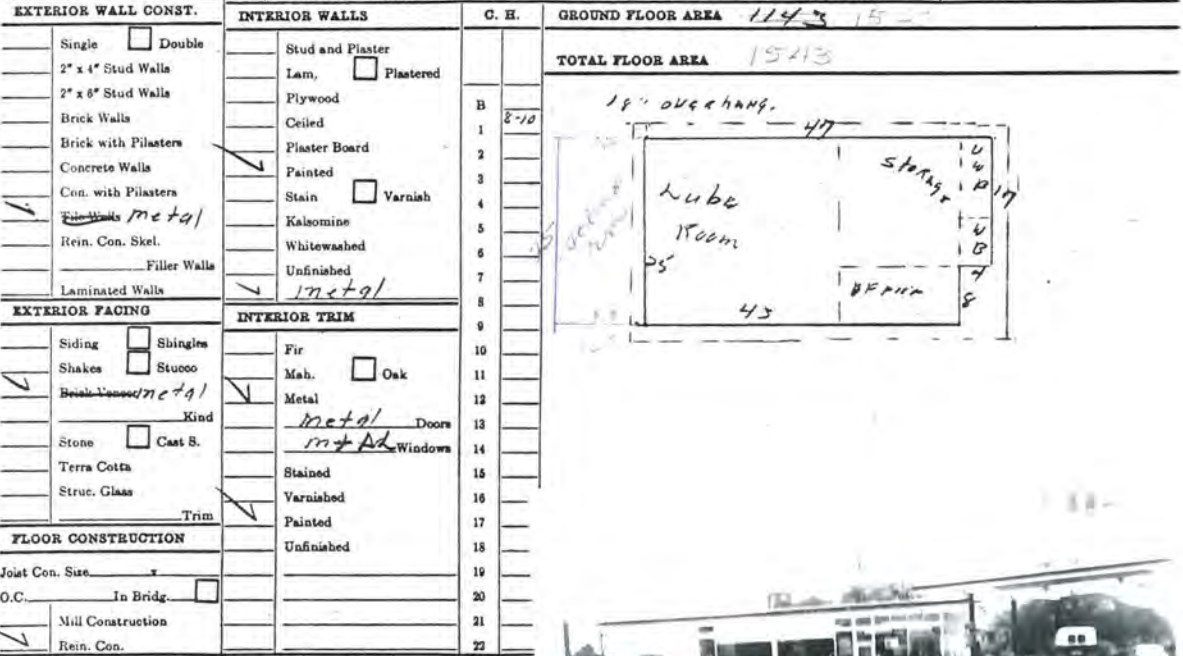 EXTERIOR WALL CONST.
Single Double
2" x 4" Stud Walls
2" x 6" Stud Walls
Brick Walls
Brick with Pilasters
Concrete Walls
Con. with Pilasters
Tile Walls metal
Rein. Con. Skel.
Filler Walls
Laminated Walls
EXTERIOR FACING
Siding Shingles
Shakes Stucco
Brick Veneer metal
Kind
Stone Cast S.
Terra Cotta
Struc. Glass
Trim
FLOOR CONSTRUCTION
Joist Con. Size x
O.C. In Bridg.
Mill Construction
Rein. Con.
INTERIOR WALLS
Stud and Plaster
Lam, Plastered
Plywood
Ceiled
Plaster Board
Painted
Stain Varnish
Kalsomine
Whitewashed
Unfinished
metal
INTERIOR TRIM
Fir
Mah. Oak
Metal
metal Doors
Windows
Stained
Varnished
Painted
Unfinished
C. H.
B 8-10
1
2
3
4
5
6
7
8
9
10
11
12
13
14
15
16
17
18
19
20
21
22
GROUND FLOOR AREA 1143
TOTAL FLOOR AREA 1543
18" overhang.
47
Lube
Room
25
Storage
17
43
8